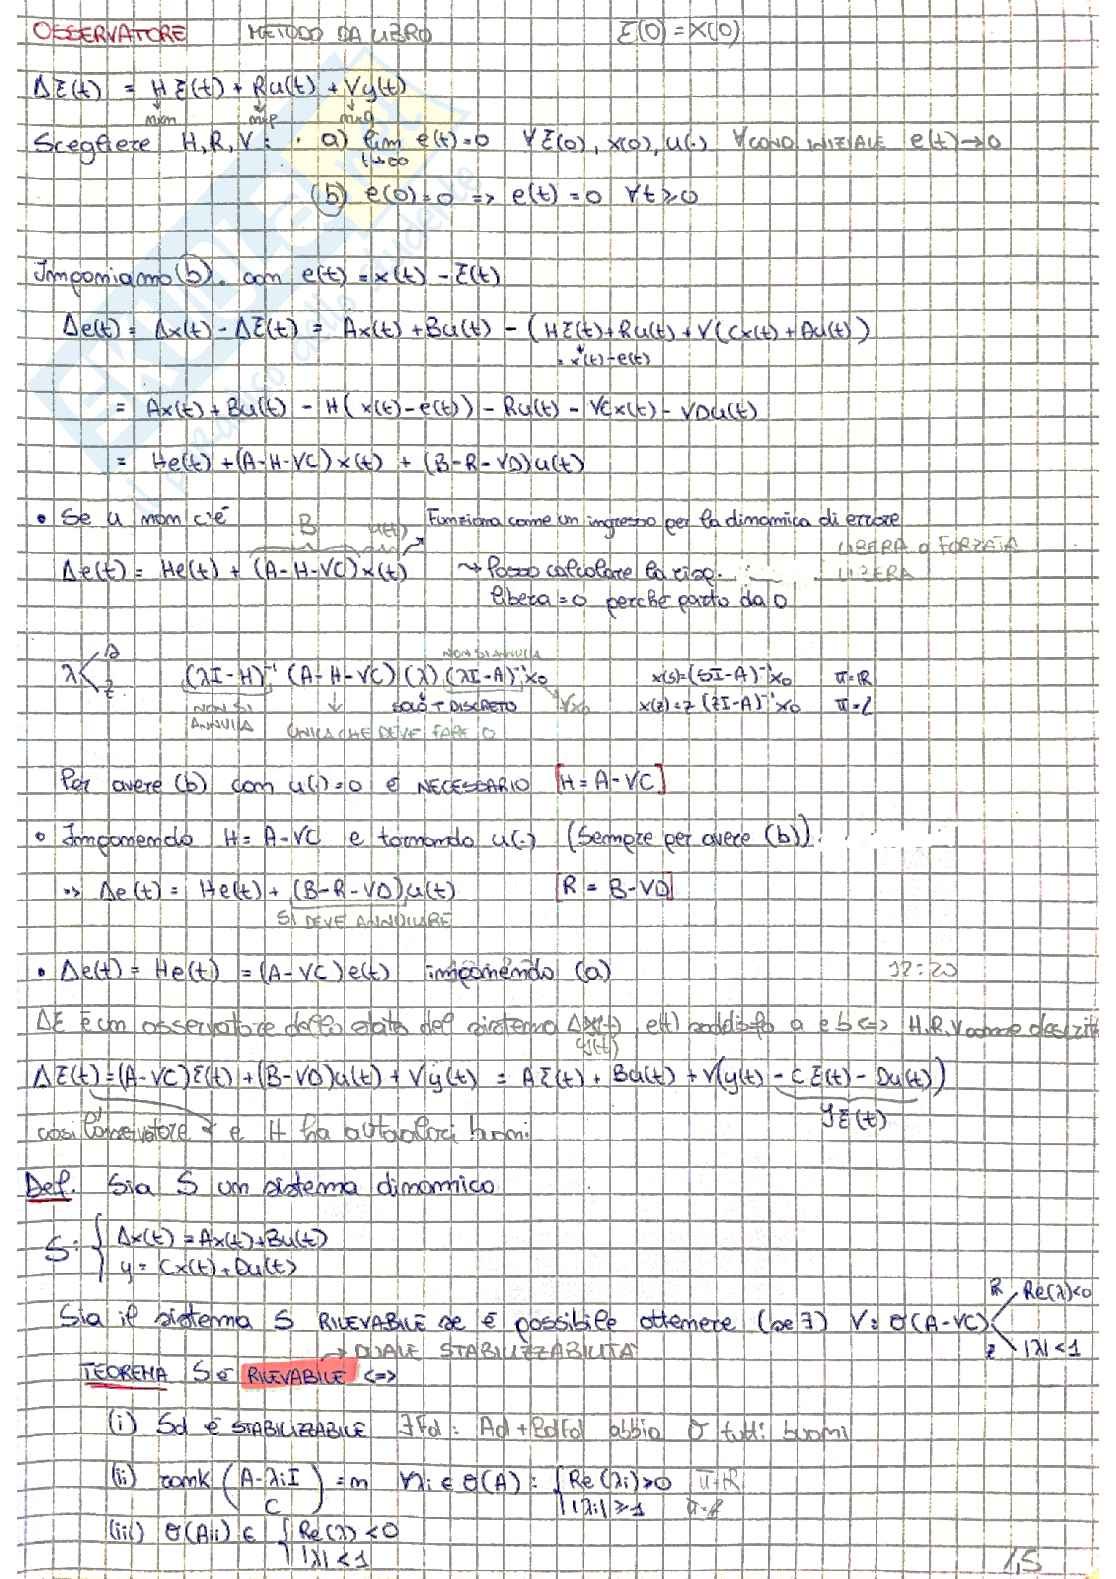 OSSERVATORE METODO DA LIBRO Ξ(0) = x(0)
ΔΞ(t) = HΞ(t) + Ru(t) + Vy(t)
n×n n×p n×q
Scegliere H, R, V: · a) lim e(t)=0 ∀Ξ(0), x(0), u(·) ∀ COND INIZIALE e(t)→0
t→∞
(b) e(0)=0 => e(t)=0 ∀t≥0
Imponiamo (b). con e(t) = x(t) - Ξ(t)
Δe(t) = Δx(t) - ΔΞ(t) = Ax(t) + Bu(t) - (HΞ(t) + Ru(t) + V(Cx(t) + Du(t))
= x(t) - e(t)
= Ax(t) + Bu(t) - H(x(t) - e(t)) - Ru(t) - VCx(t) - VDu(t)
= He(t) + (A-H-VC)x(t) + (B-R-VD)u(t)
• Se u non c'è B u(t) Funziona come un ingresso per la dinamica di errore
LIBERA o FORZATA
Δe(t) = He(t) + (A-H-VC)x(t) → Posso calcolare la risp. LIBERA
libera = 0 perché parto da 0
NON SI ANNULLA
λ < s z (λI-H)⁻¹ (A-H-VC)(λ)(λI-A)⁻¹x₀ x(s)=(sI-A)⁻¹x₀ π=R
NON SI ANNULLA ↓ SOLO T DISCRETO ∀x₀ x(z)=z(zI-A)⁻¹x₀ π=Z
UNICA CHE DEVE FARE 0
Per avere (b) con u(·)=0 è NECESSARIO [H = A-VC]
• Imponendo H = A-VC e tornando u(·) (Sempre per avere (b)).
=> Δe(t) = He(t) + (B-R-VD)u(t) [R = B-VD]
SI DEVE ANNULLARE
• Δe(t) = He(t) = (A-VC)e(t) imponendo (a) 12:20
ΔΞ è un osservatore dello stato del sistema Δx(t) e(t) soddisfa a e b <=> H,R,V come descritti
y(t)
ΔΞ(t) = (A-VC)Ξ(t) + (B-VD)u(t) + Vy(t) = AΞ(t) + Bu(t) + V(y(t) - CΞ(t) - Du(t))
yΞ(t)
così l'osservatore è e H ha autovalori buoni
Def. Sia S un sistema dinamico
S: { Δx(t) = Ax(t) + Bu(t)
y = Cx(t) + Du(t)
Sia il sistema S RILEVABILE se è possibile ottenere (se ∃) V: σ(A-VC) < R Re(λ)<0
Z |λ|<1
→ DUALE STABILIZZABILITÀ
TEOREMA S è RILEVABILE <=>
(i) Sd è STABILIZZABILE ∃Fd: Ad + BdFd abbia σ tutti buoni
(ii) rank (A-λiI C) = n ∀λi ∈ σ(A): { Re(λi)≥0 π=R
|λi|≥1 π=Z
(iii) σ(Aii) ∈ { Re(λ) < 0
|λ| < 1
15